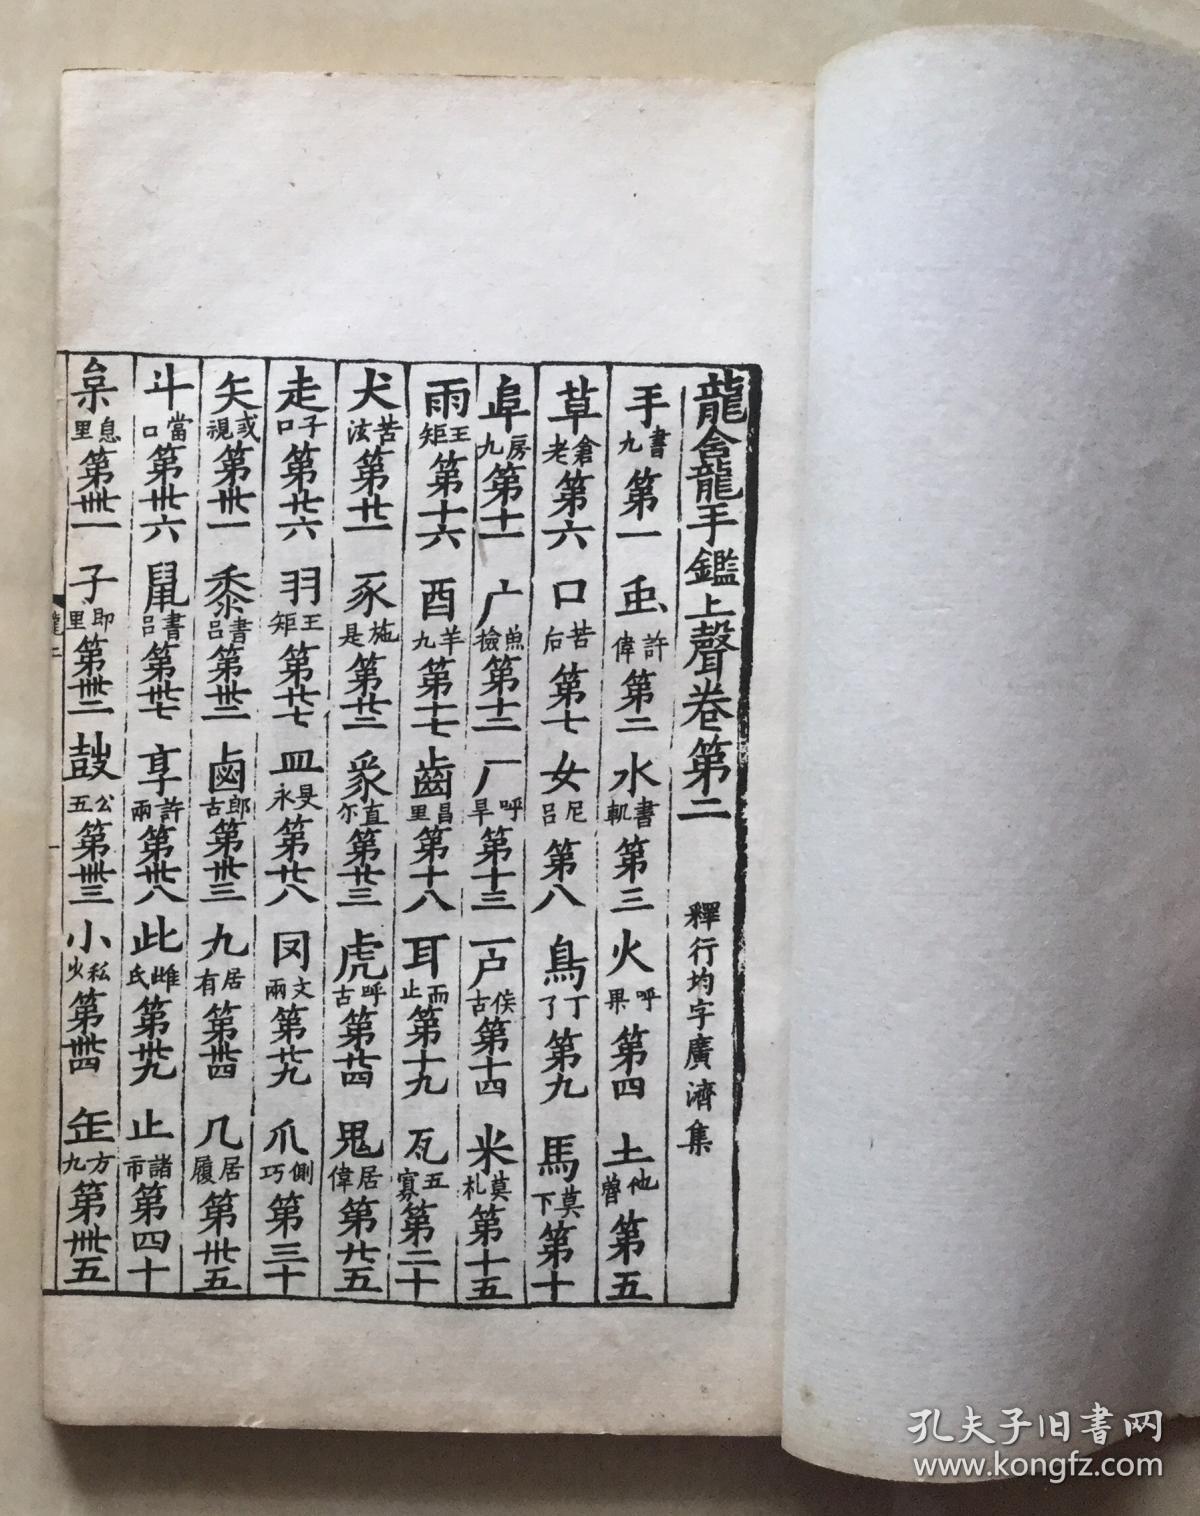 龍龕手鑑上聲卷第二 釋行均字廣濟集
手書九第一 虫許偉第二 水書軌第三 火呼果第四 土他魯第五
草倉老第六 口苦后第七 女尼呂第八 鳥丁了第九 馬莫下第十
阜房九第十一 广魚檢第十二 厂呼旱第十三 戶侯古第十四 米莫札第十五
雨王矩第十六 酉羊九第十七 齒昌里第十八 耳而止第十九 瓦五寡第二十
犬苦泫第廿一 豕施是第廿二 豸直尒第廿三 虎呼古第廿四 鬼居偉第廿五
走子口第廿六 羽王矩第廿七 皿旻永第廿八 罔文兩第廿九 爪側巧第三十
矢或視第卅一 黍書呂第卅二 鹵郎古第卅三 九居有第卅四 几居履第卅五
斗當口第卅六 鼠書呂第卅七 享許兩第卅八 此雌氏第卅九 止諸市第四十
枲息里第卌一 子即里第卌二 鼓公五第卌三 小私火第卌四 缶方九第卌五
孔夫子旧书网
www.kongfz.com